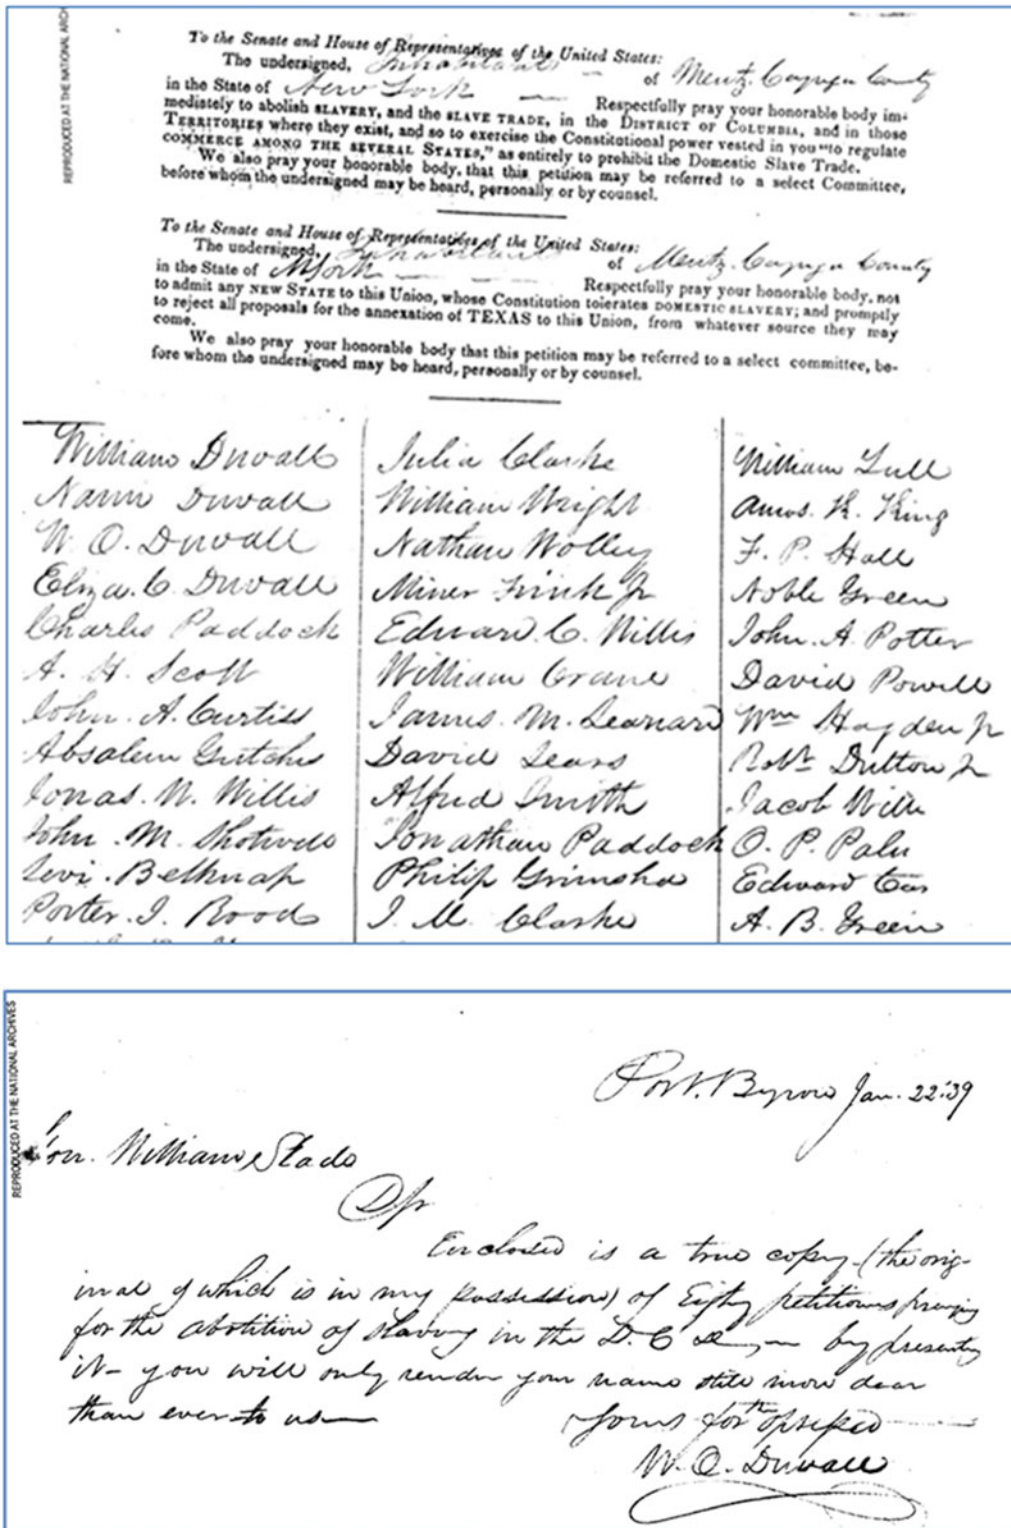 REPRODUCED AT THE NATIONAL ARCH
To the Senate and House of Representatives of the United States:
The undersigned, Inhabitants of Mentz. Cayuga County
in the State of New York Respectfully pray your honorable body im-
mediately to abolish SLAVERY, and the SLAVE TRADE, in the DISTRICT OF COLUMBIA, and in those
TERRITORIES where they exist, and so to exercise the Constitutional power vested in you "to regulate
COMMERCE AMONG THE SEVERAL STATES," as entirely to prohibit the Domestic Slave Trade.
We also pray your honorable body, that this petition may be referred to a select Committee,
before whom the undersigned may be heard, personally or by counsel.
To the Senate and House of Representatives of the United States:
The undersigned, Inhabitants of Mentz. Cayuga County
in the State of NYork Respectfully pray your honorable body, not
to admit any NEW STATE to this Union, whose Constitution tolerates DOMESTIC SLAVERY; and promptly
to reject all proposals for the annexation of TEXAS to this Union, from whatever source they may
come.
We also pray your honorable body that this petition may be referred to a select committee, be-
fore whom the undersigned may be heard, personally or by counsel.
William Duvall
Duvall
W. O. Duvall
Eliza. C. Duvall
Charles Paddock
A. H. Scott
John. A. Curtiss
Absalem Gutches
Jonas. W. Willis
John. M.
Levi. Belknap
Porter. I. Roods
Julia Clarke
William Wright
Nathan Wolley
Miner Frink Jr
Edward. C. Willis
William Crane
James. M. Leanard
David Sears
Alfred Smith
Jonathan Paddock
Philip
I. M. Clarke
William Lull
Amos. K. King
F. P. Hall
Noble Green
John. A. Potter
David Powell
Wm Hagden Jr
Robt. Dutton Jr
Jacob
O. P.
Edward
A. B. Green
REPRODUCED AT THE NATIONAL ARCHIVES
Port. Byron Jan. 22. 39
Hon. William Slade
Dr Sr
Enclosed is a true copy (the orig-
inal of which is in my possession) of Eighty petitions praying
for the abolition of slavery in the D. C by presenting
it - you will only render your name still more dear
than ever to us
Yours for the oppressed
W. O. Duvall